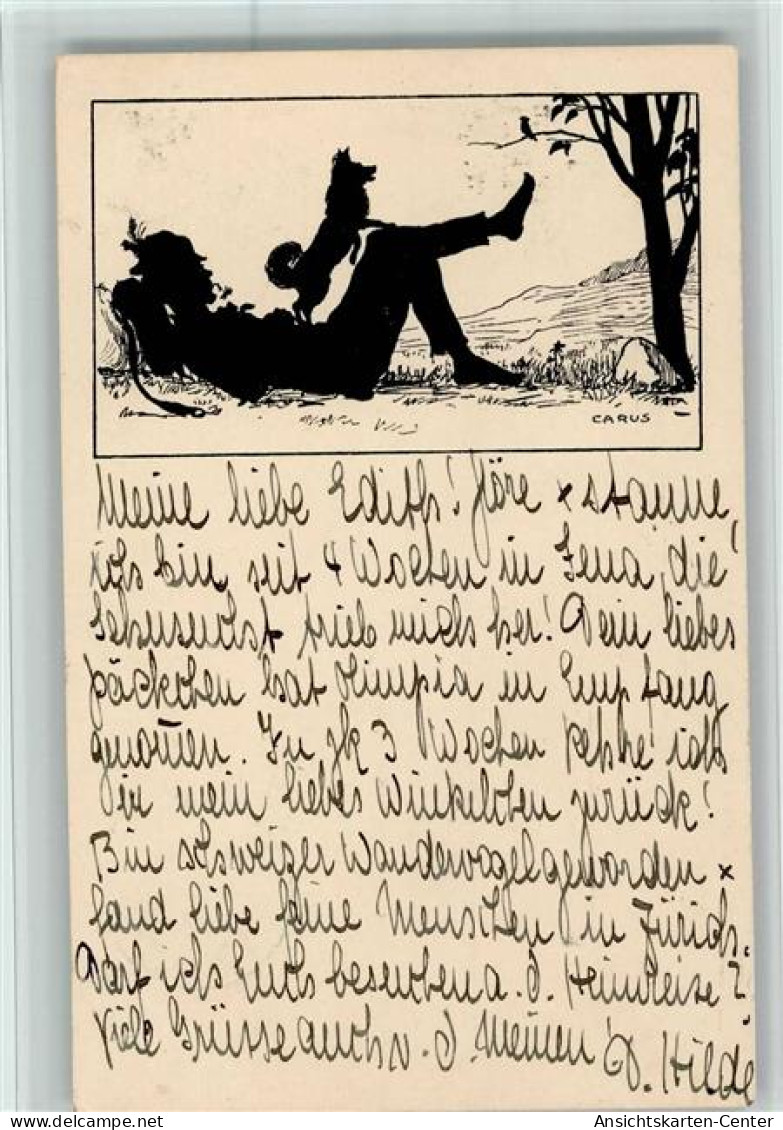 CARUS
Meine liebe Edith! Höre + staune,
ich bin seit 4 Wochen in Jena, die
Sehnsucht trieb mich her! Dein liebes
Päckchen hat Olimpia in Empfang
genom̅en. In zk 3 Wochen kehre ich
in mein liebes Winkelchen zurück!
Bin schweizer Wandervogel geworden +
fand liebe feine Menschen in Zürich.
Darf ich Euch besuchen a. d. Heimreise?
Viele Grüsse auch v. d. Meinen!
D. Hilde
Ansichtskarten-Center